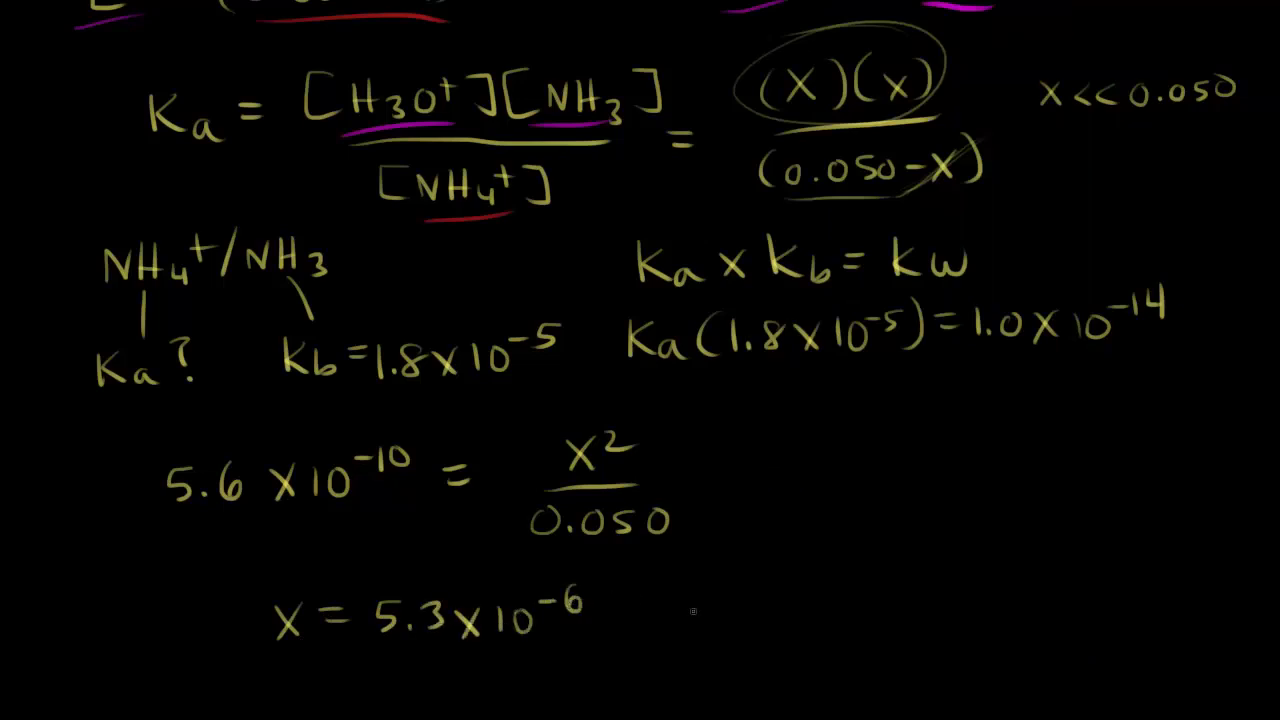 Ka = [H3O+][NH3] / [NH4+] = (x)(x) / (0.050-x)
x<<0.050
NH4+/NH3
Ka x Kb = Kw
Ka ?
Kb = 1.8 x 10^-5
Ka (1.8 x 10^-5) = 1.0 x 10^-14
5.6 x 10^-10 = x^2 / 0.050
x = 5.3 x 10^-6